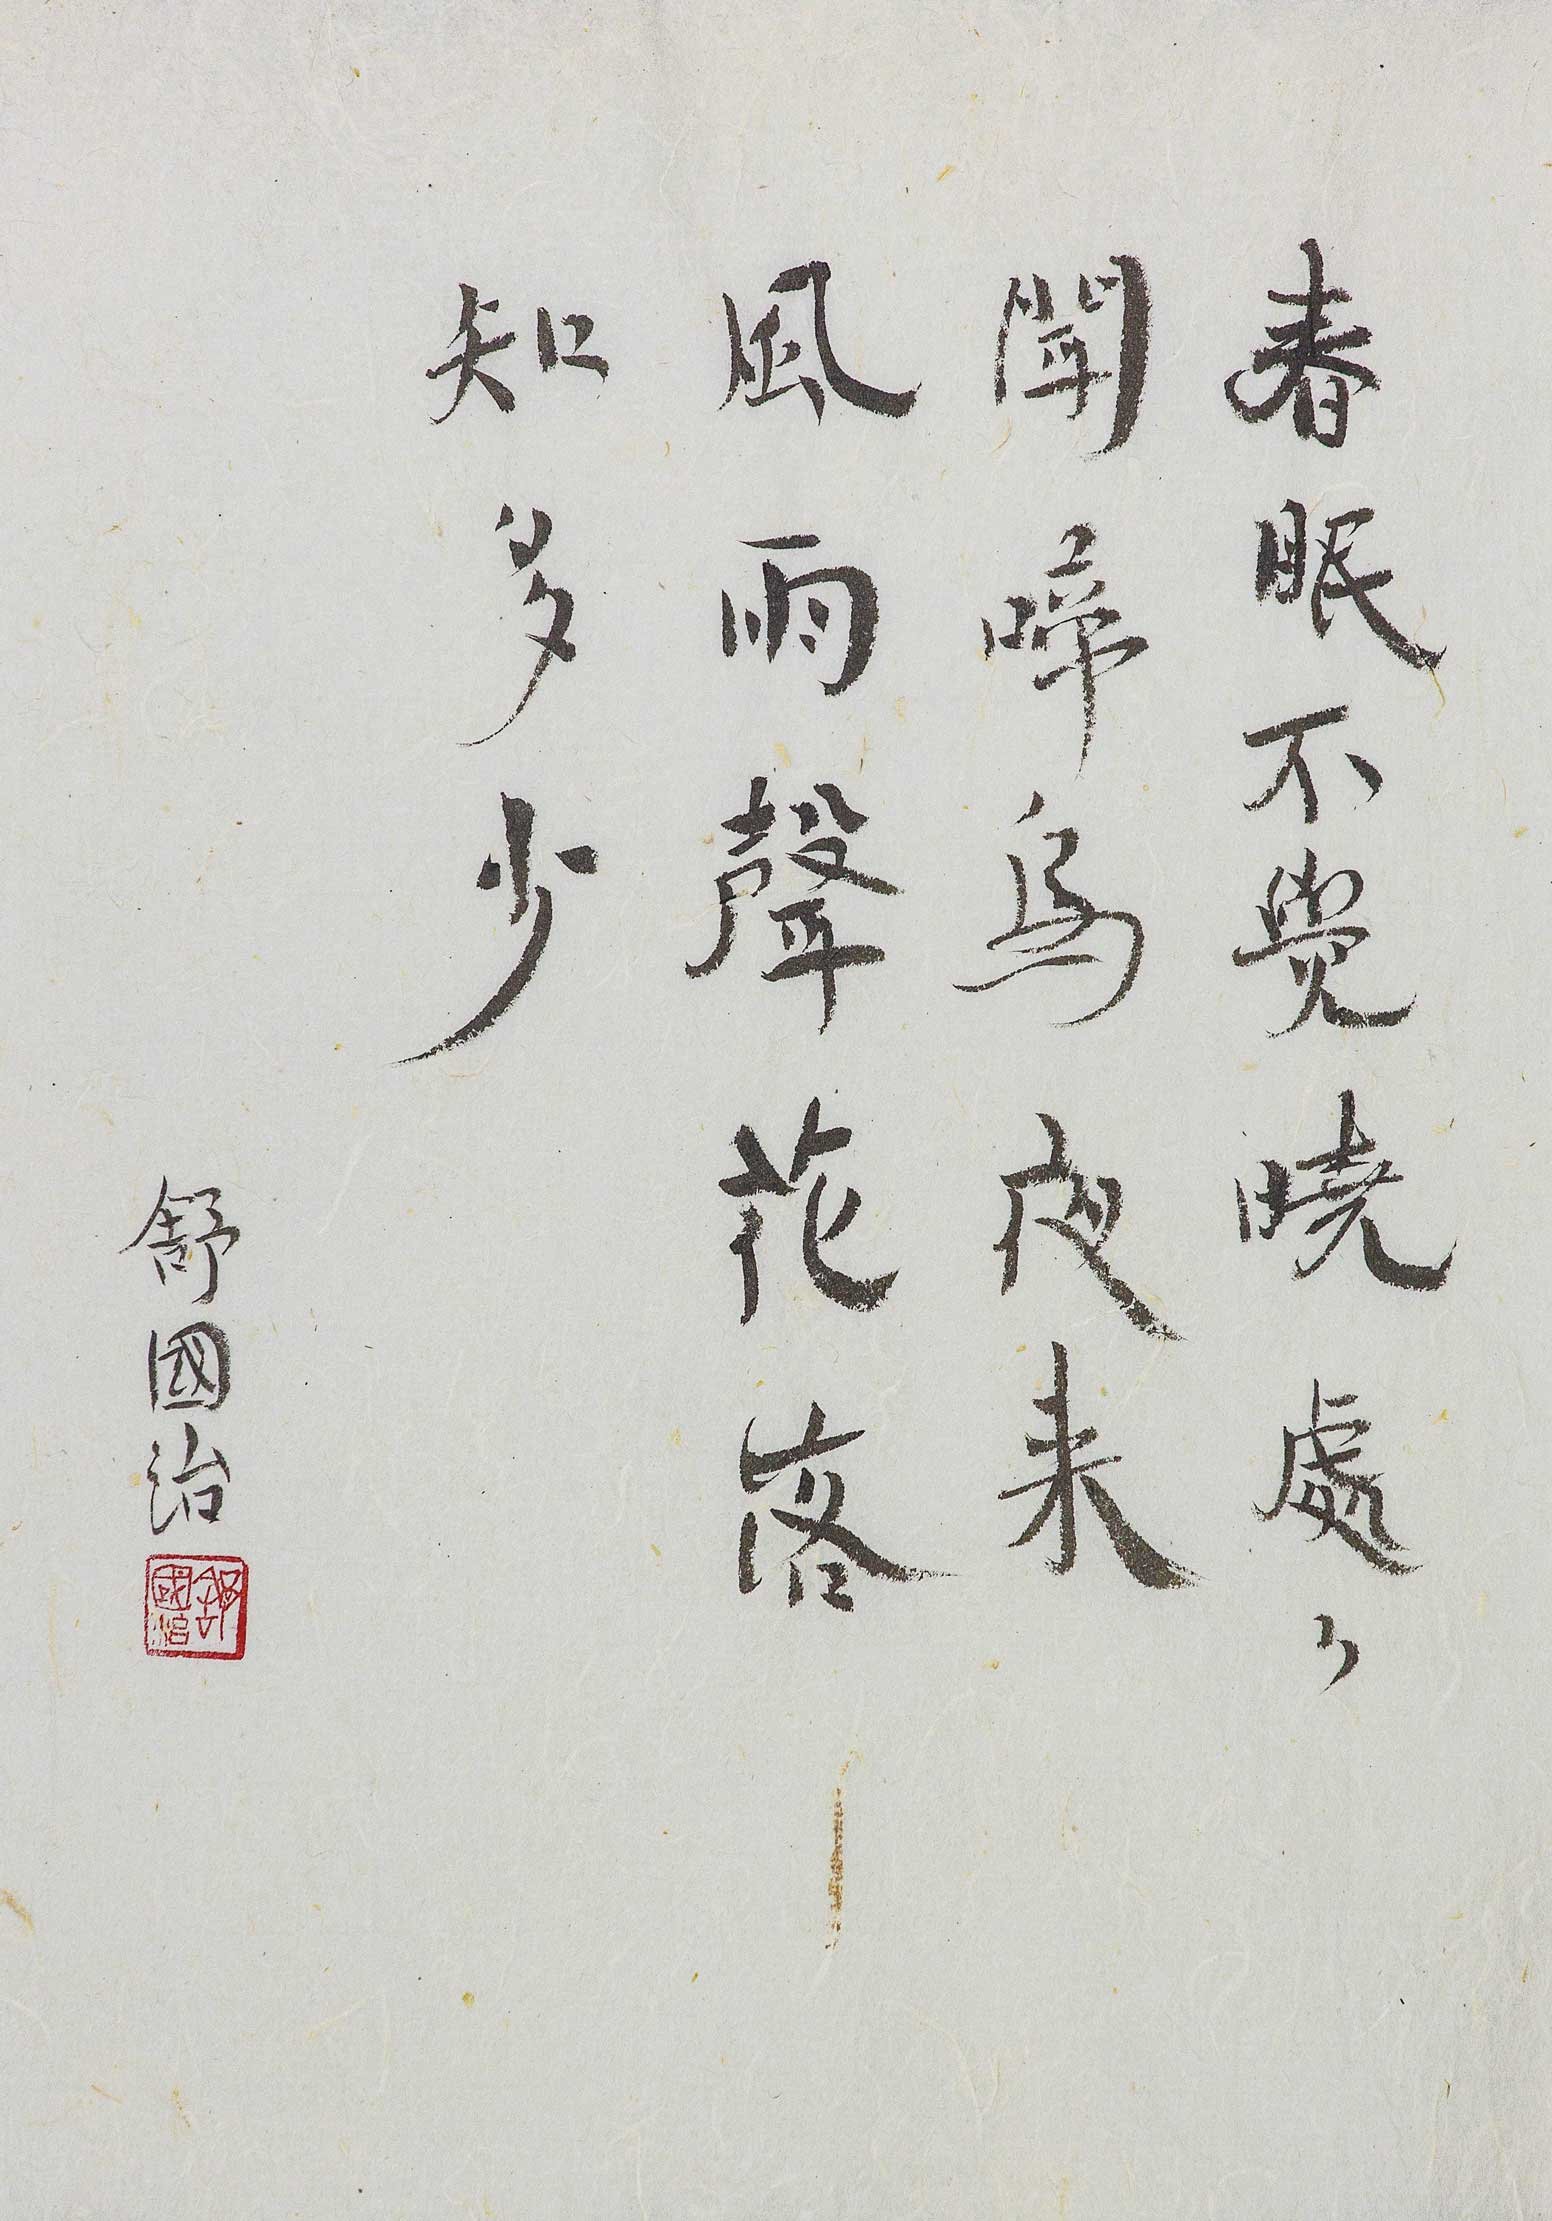 春眠不覺曉處〻
聞啼鳥夜来
風雨聲花落
知多少
舒國治
舒國治